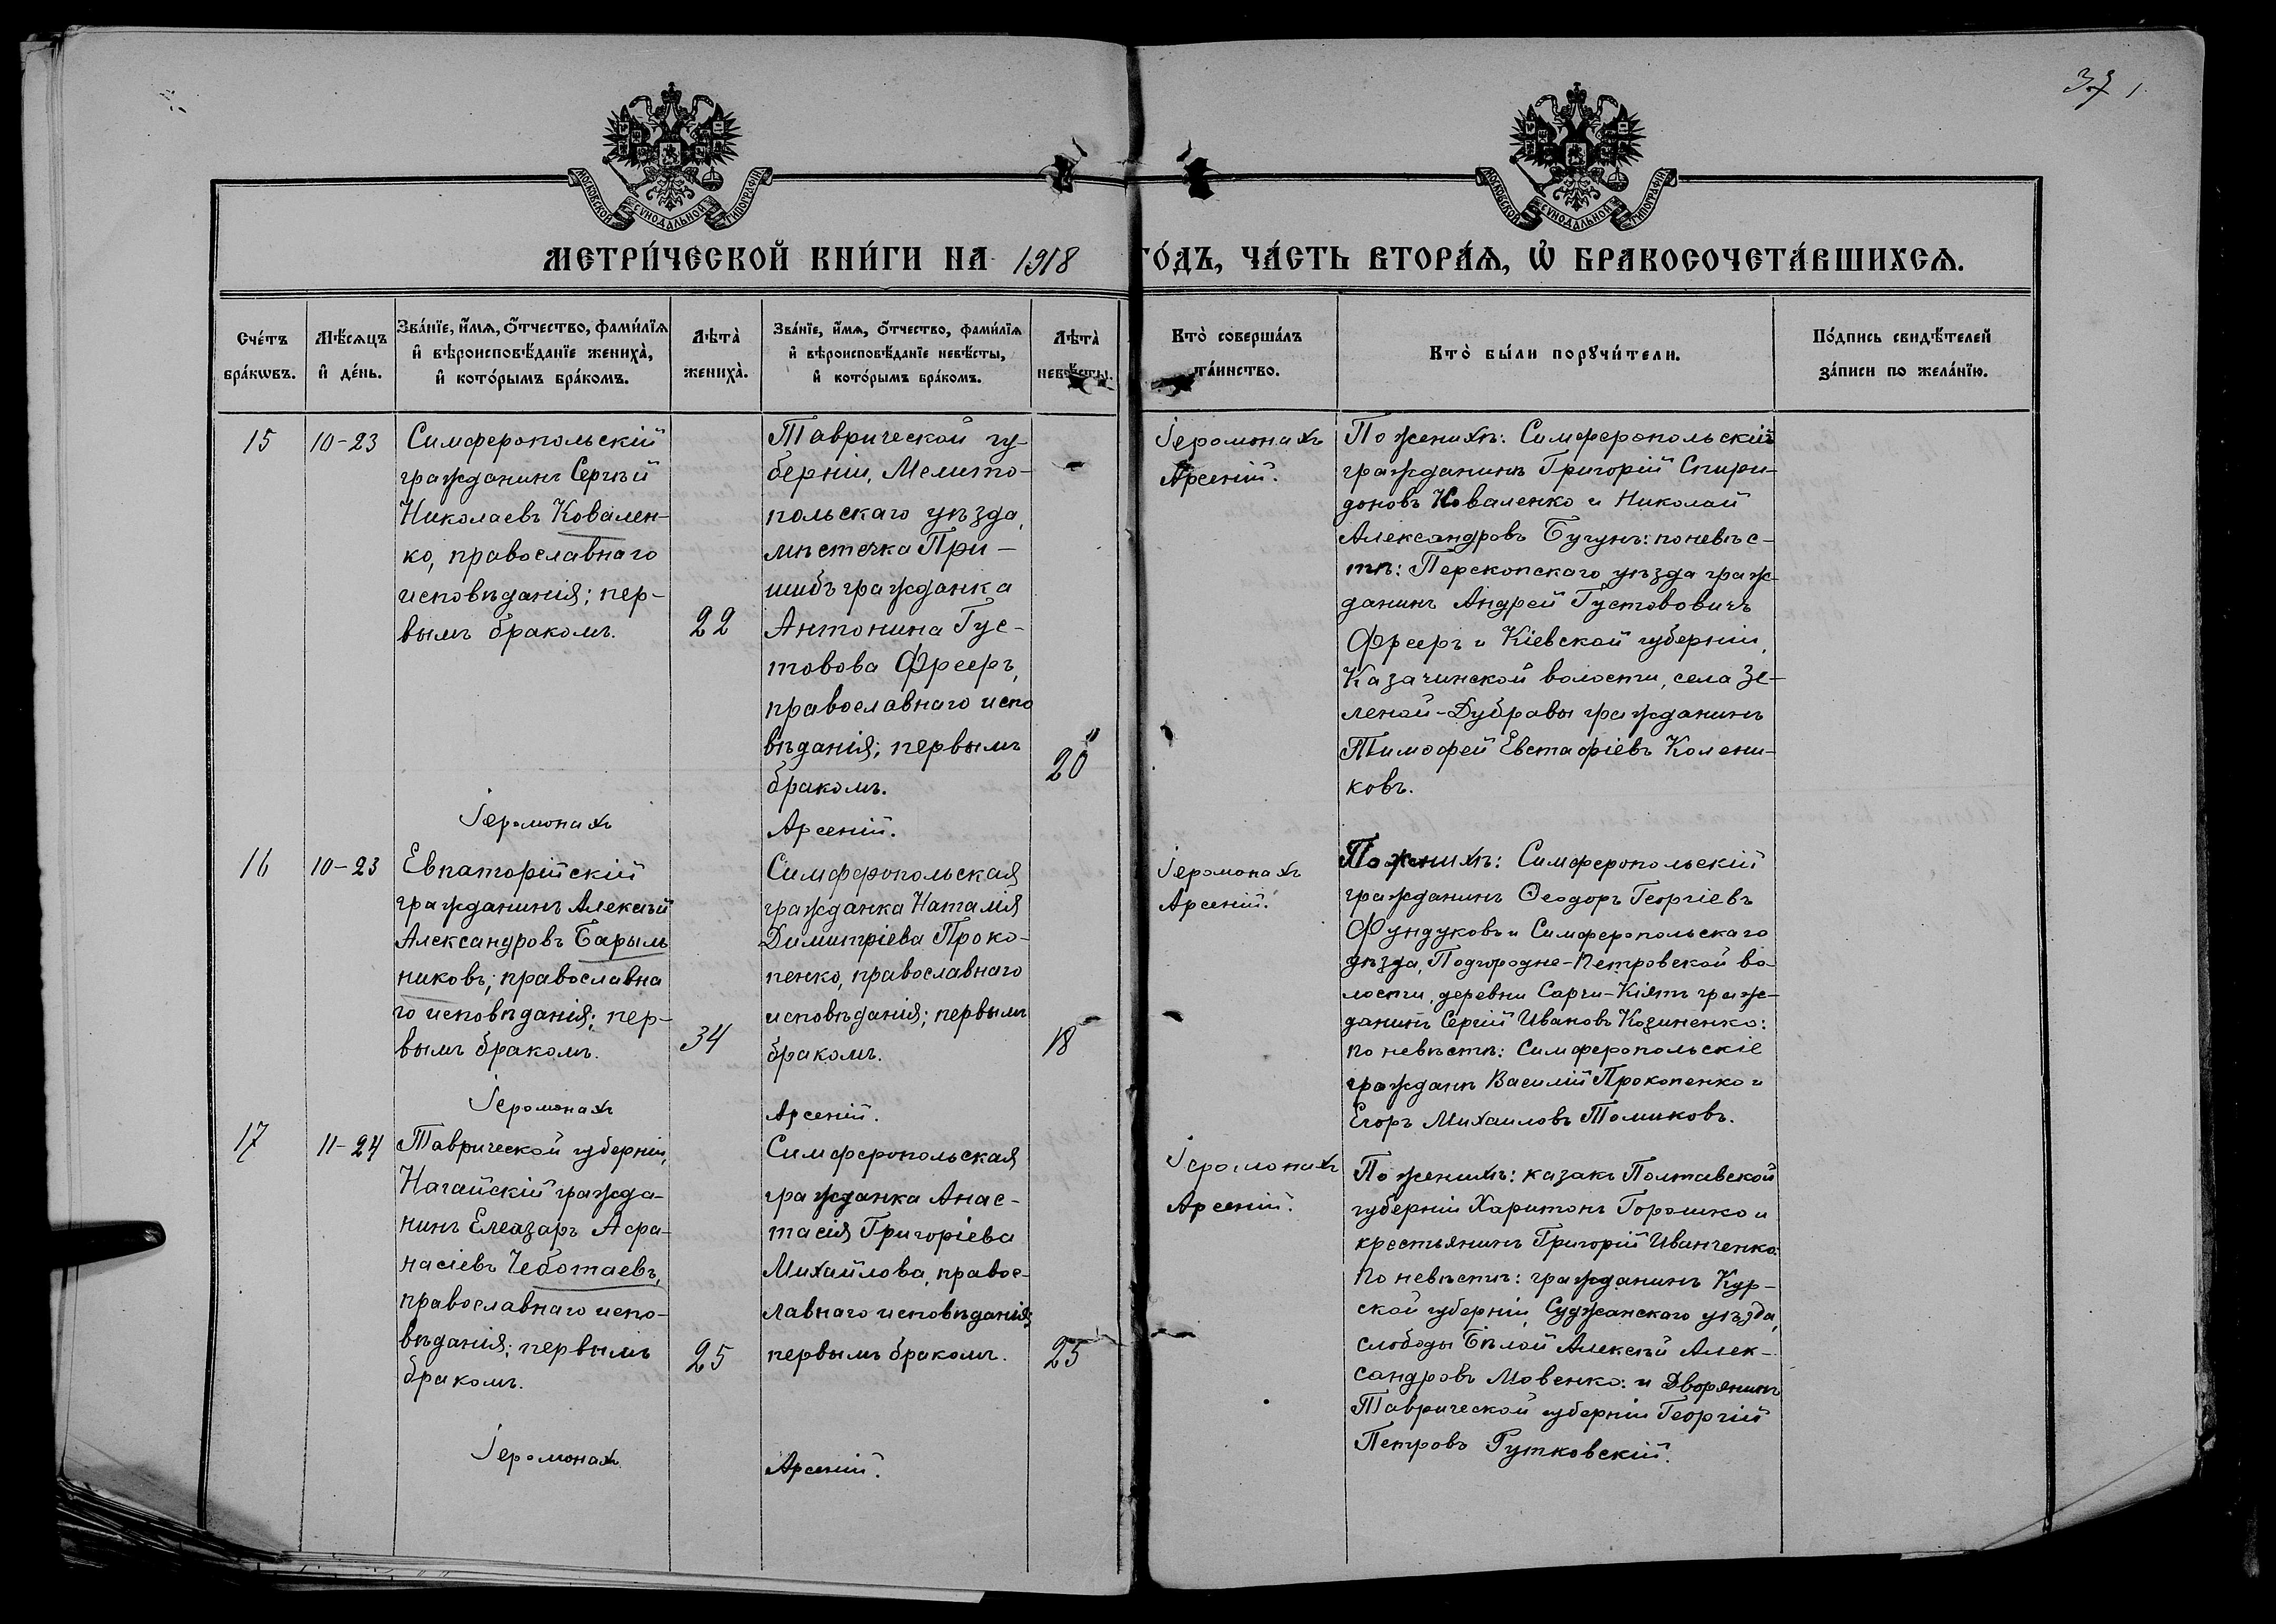 37
МОСКОВСКОЙ СѴНОДАЛЬНОЙ ТИПОГРАФІИ
МОСКОВСКОЙ СѴНОДАЛЬНОЙ ТИПОГРАФІИ
МЕТРИ́ЧЕСКОЙ КНИ́ГИ НА 1918 ГО́ДЪ, ЧА́СТЬ ВТОРА́Ѧ, Ѽ БРАКОСОЧЕТА́ВШИХСѦ.
Сче́тъ
бра́кѡвъ.
Мѣ́сѧцъ
и҆ де́нь.
Зва́нїе, и҆́мѧ, ѻ҆́тчество, фами́лїѧ
и҆ вѣроисповѣ́данїе жениха̀,
и҆ кото́рымъ бра́комъ.
Лѣта̀
жениха̀.
Зва́нїе, и҆́мѧ, ѻ҆́тчество, фами́лїѧ
и҆ вѣроисповѣ́данїе невѣ́сты,
и҆ кото́рымъ бра́комъ.
Лѣта̀
невѣ́сты.
Кто̀ соверша́лъ
та́инство.
Кто̀ бы́ли порꙋчи́тели.
По́дпись свидѣ́телей
за́писи по жела́нїю.
15
10-23
Симферопольскій
гражданинъ Сергѣй
Николаевъ Ковален-
ко, православнаго
исповѣданія; пер-
вымъ бракомъ.
22
Таврической гу-
берніи, Мелито-
польскаго уѣзда,
мѣстечка При-
шибъ гражданка
Антонина Гус-
товова Фрееръ,
православнаго испо
вѣданія; первымъ
бракомъ.
20
Іеромонахъ
Арсеній.
Іеромонахъ
Арсеній.
По женихѣ: Симферопольскій
гражданинъ Григорій Спири-
доновъ Коваленко и Николай
Александровъ Бугунъ: по невѣс-
тѣ: Перекопскаго уѣзда граж-
данинъ Андрей Густововичъ
Фрееръ и Кіевской губерніи,
Казачинской волости, села Зе-
леной-Дубравы гражданинъ
Тимофей Евстафіевъ Колени-
ковъ.
16
10-23
Евпаторійскій
гражданинъ Алексѣй
Александровъ Барыль
никовъ; православна
го исповѣданія; пер-
вымъ бракомъ.
34
Симферопольская
гражданка Наталія
Димитріева Проко-
пенко, православнаго
исповѣданія; первымъ
бракомъ.
18
Іеромонахъ
Арсеній.
Іеромонахъ
Арсеній.
По женихѣ: Симферопольскій
гражданинъ Ѳеодоръ Георгіевъ
Фундуковъ и Симферопольскаго
уѣзда, Подгородне-Петровской во-
лости, деревни Сарчи-Кіятъ граж-
данинъ Сергій Ивановъ Козиненко:
по невѣстѣ: Симферопольскіе
гражданѣ Василій Прокопенко и
Егоръ Михаиловъ Томиковъ.
17
11-24
Таврической губерніи,
Нагайскій гражда-
нинъ Елеазаръ Афа-
насіевъ Чеботаевъ,
православнаго испо-
вѣданія; первымъ
бракомъ.
25
Симферопольская
гражданка Анас-
тасія Григоріева
Михайлова, правос-
лавнаго исповѣданія;
первымъ бракомъ.
25
Іеромонахъ
Арсеній.
Іеромонахъ
Арсеній.
По женихѣ: казакъ Полтавской
губерніи Харитонъ Горошко и
крестьянинъ Григорій Иванченко:
По невѣстѣ: гражданинъ Кур-
ской губерніи, Суджанскаго уѣзда,
слободы Бѣлой Алексѣй Алек-
сандровъ Мовенко: и Дворянинъ
Таврической губерніи Георгій
Петровъ Рутковскій.